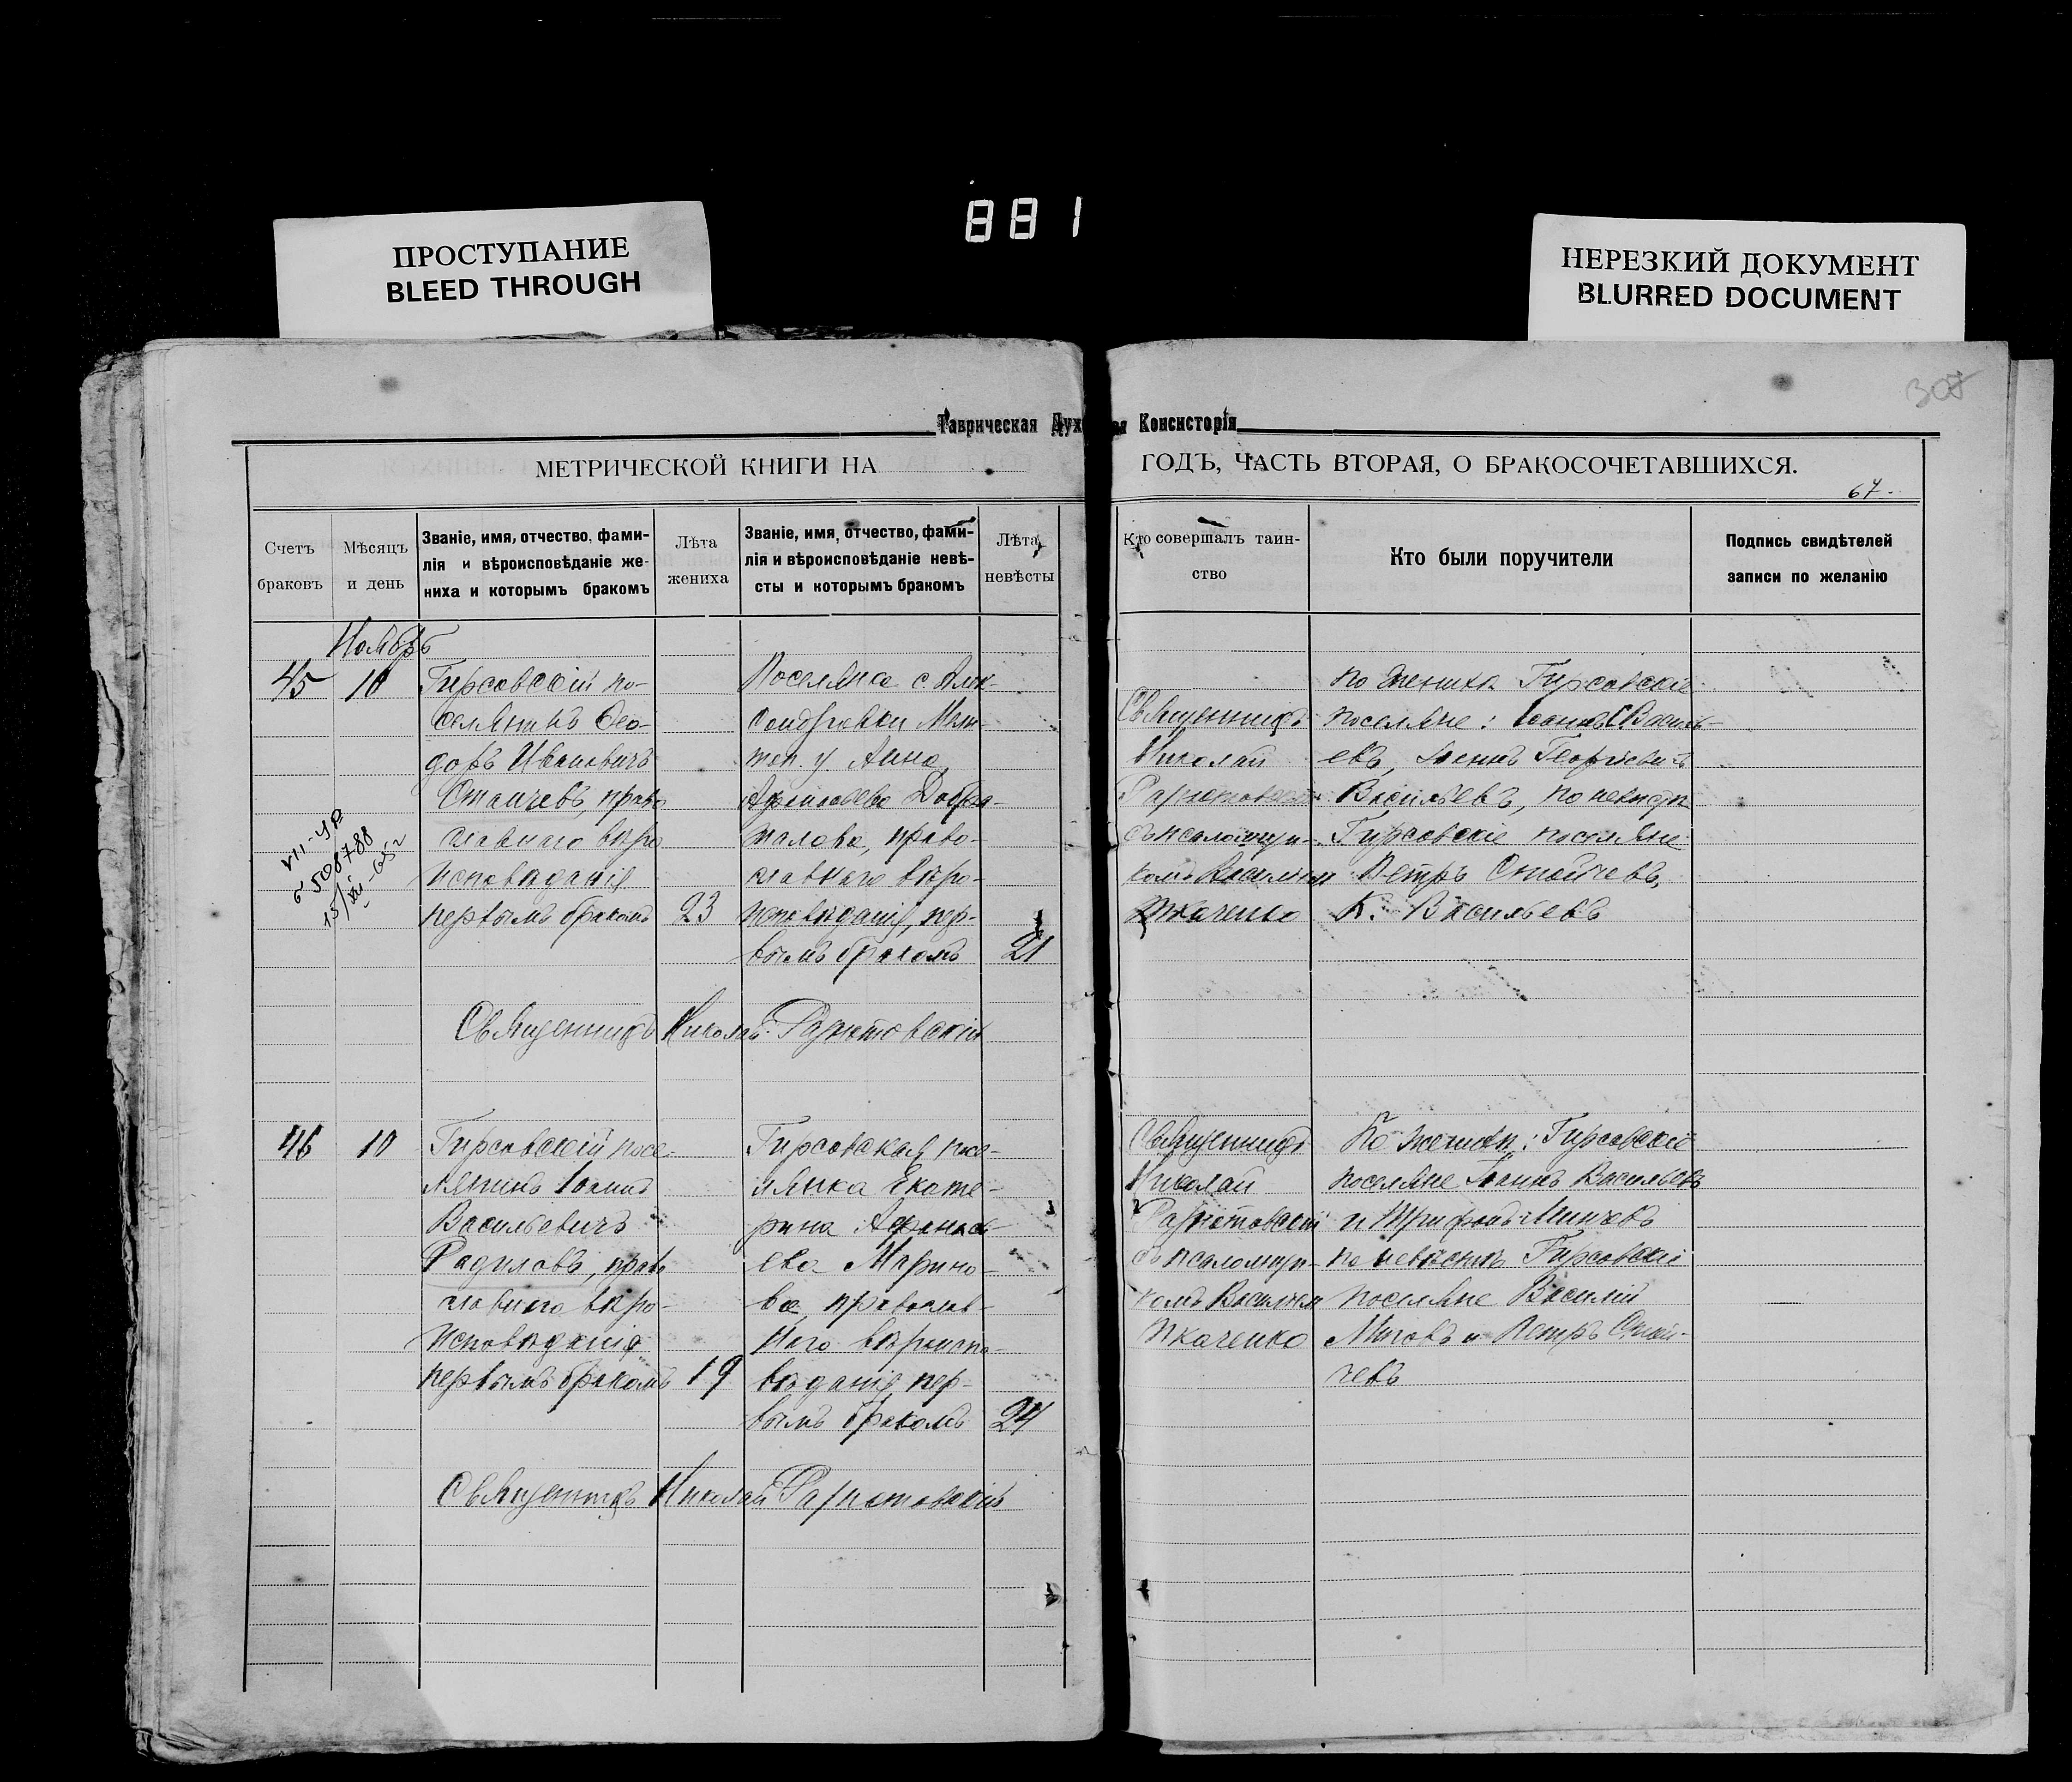 881
ПРОСТУПАНИЕ
BLEED THROUGH
НЕРЕЗКИЙ ДОКУМЕНТ
BLURRED DOCUMENT
308
Таврическая Дух ая Консисторія
МЕТРИЧЕСКОЙ КНИГИ НА ГОДЪ, ЧАСТЬ ВТОРАЯ, О БРАКОСОЧЕТАВШИХСЯ.
67.
Счетъ браковъ
Мѣсяцъ и день
Званіе, имя, отчество, фами-
лія и вѣроисповѣданіе же-
ниха и которымъ бракомъ
Лѣта жениха
Званіе, имя, отчество, фами-
лія и вѣроисповѣданіе невѣ-
сты и которымъ бракомъ
Лѣта невѣсты
Кто совершалъ таин-
ство
Кто были поручители
Подпись свидѣтелей
записи по желанію
Ноябрь
45
10
Гирсовскій по-
селянинъ Ѳео-
доръ Ивановичъ
Стаичевъ, право
славнаго вѣро
исповѣданія
первымъ бракомъ
23
Поселянка с. Алек
Мели-
топ. у. Анна
право-
славнаго вѣро-
исповѣданія, пер-
вымъ бракомъ
21
Священникъ
Николай
съ псаломщи-
комъ Василіемъ
Ткаченко
по жениха Гирсовскіе
поселяне: Іоаннъ Василь-
евъ, Іоаннъ Георгіевичъ
Васильевъ, по невѣстѣ
Гирсовскіе поселяне
Петръ Стойчевъ,
К. Васильевъ
VII-УР
508788
Священникъ Николай
46
10
Гирсовскій посе-
лянинъ Іоаннъ
Васильевичъ
Радиловъ, право
славнаго вѣро-
исповѣданія
первымъ бракомъ
19
Гирсовская посе-
лянка Екате-
рина Афанась-
ева Марино-
ва, православ-
наго вѣроиспо-
вѣданія, пер-
вымъ бракомъ
24
Священникъ
Николай
съ псаломщи-
комъ Василіемъ
Ткаченко
По жениху: Гирсовскіе
поселяне Іоаннъ Васильевъ
и Трифонъ Минчевъ
по невѣстѣ Гирсовскіе
поселяне Василій
Митовъ и Петръ Стой-
чевъ
Священникъ Николай